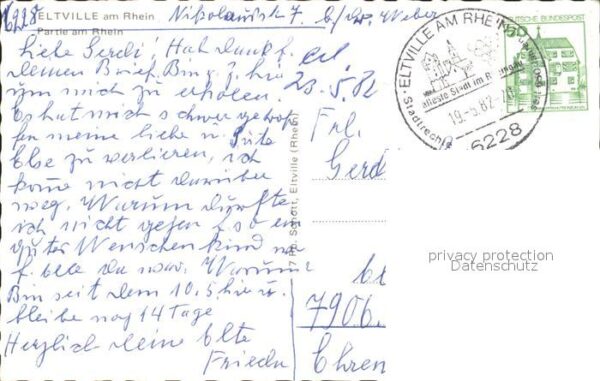 6228 ELTVILLE am Rhein Nikolausstr 7. b/ Weber
Partie am Rhein
Liebe Gerdi! Hab Dank f.
Deinen Brief. Bin z. hier
um mich zu erholen
Es hat mich schwer getrof
fen meine liebe u. gute
Else zu verlieren, ich
kome nicht darüber
weg. Warum durfte
ich nicht gehen f. so ein
guter Menschenkind
Bin seit dem 10.5. hier u.
bleibe noch 14 Tage
Herzlich Deine alte
Frieda
Schött, Eltville (Rhein)
23.5.82
Frl.
Gerd
7906
Ehren
ELTVILLE AM RHEIN
älteste Stadt im Rheingau
19.-5.82
6228
DEUTSCHE BUNDESPOST
50
privacy protection
Datenschutz